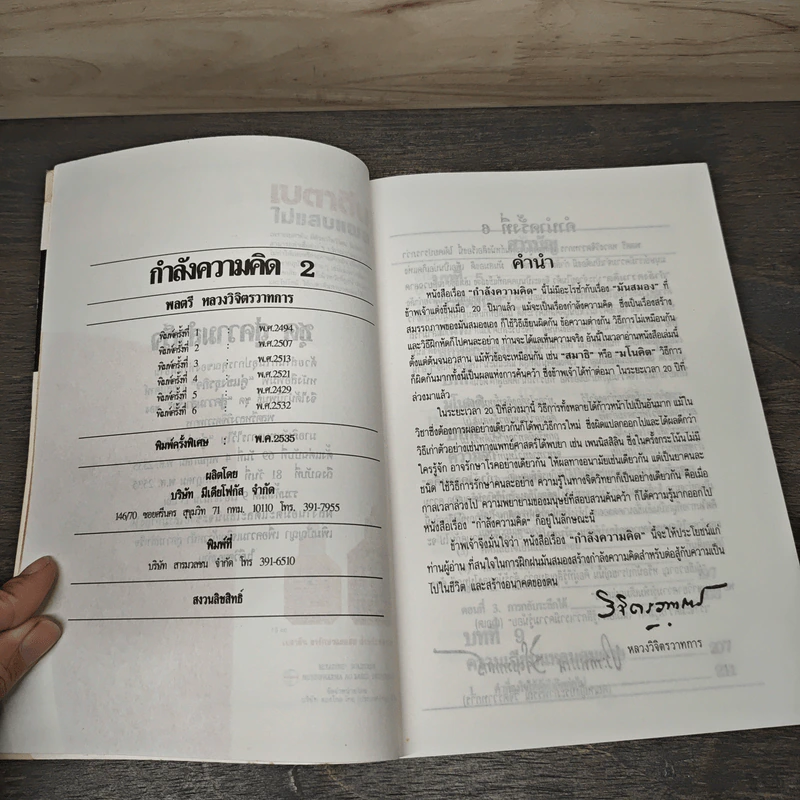 กำลังความคิด 2
พลตรี หลวงวิจิตรวาทการ
พิมพ์ครั้งที่ 1 : พ.ศ.2494
พิมพ์ครั้งที่ 2 : พ.ศ.2507
พิมพ์ครั้งที่ 3 : พ.ศ.2513
พิมพ์ครั้งที่ 4 : พ.ศ.2521
พิมพ์ครั้งที่ 5 : พ.ศ.2429
พิมพ์ครั้งที่ 6 : พ.ศ.2532
พิมพ์ครั้งพิเศษ : พ.ศ.2535
ผลิตโดย
บริษัท มีเดียโฟกัส จำกัด
146/70 ซอยศรีนคร สุขุมวิท 71 กทม. 10110 โทร. 391-7955
พิมพ์ที่
บริษัท สารมวลชน จำกัด โทร 391-6510
สงวนลิขสิทธิ์
คำนำ
หนังสือเรื่อง "กำลังความคิด" นี้ไม่มีอะไรซ้ำกับเรื่อง "มันสมอง" ที่
ข้าพเจ้าแต่งขึ้นเมื่อ 20 ปีมาแล้ว แม้จะเป็นเรื่องกำลังความคิด ซึ่งเป็นเรื่องสร้าง
สมรรถภาพของมันสมองเอง ก็ใช้วิธีเขียนผิดกัน ข้อความต่างกัน วิธีการไม่เหมือนกัน
และวิธีฝึกหัดก็ไปคนละอย่าง ท่านจะได้แลเห็นความจริง อันนี้ในเวลาอ่านหนังสือเล่มนี้
ตั้งแต่ต้นจนอวสาน แม้หัวข้อจะเหมือนกัน เช่น "สมาธิ" หรือ "มโนคติ" วิธีการ
ก็ผิดกันมากทั้งนี้เป็นผลแห่งการค้นคว้า ซึ่งข้าพเจ้าได้ทำต่อมา ในระยะเวลา 20 ปีที่
ล่วงมาแล้ว
ในระยะเวลา 20 ปีที่ล่วงมานี้ วิธีการทั้งหลายได้ก้าวหน้าไปเป็นอันมาก แม้ใน
วิชาซึ่งต้องการผลอย่างเดียวกันก็ได้พบวิธีการใหม่ ซึ่งผิดแปลกออกไปและได้ผลดีกว่า
วิธีเก่าตัวอย่างเช่นทางแพทย์ศาสตร์ได้พบยา เช่น เพนนิสลิลิน ซึ่งในครั้งกระโน้นไม่มี
ใครรู้จัก อาจรักษาโรคอย่างเดียวกัน ให้ผลทางอนามัยเช่นเดียวกัน แต่เป็นยาคนละ
ชนิด ใช้วิธีการรักษาคนละอย่าง ความรู้ในทางจิตวิทยาก็เป็นอย่างเดียวกัน คือเมื่อ
กาลเวลาล่วงไป ความพยายามของมนุษย์ที่สอบสวนค้นคว้า ก็ได้ความรู้มากออกไป
หนังสือเรื่อง "กำลังความคิด" ก็อยู่ในลักษณะนี้
ข้าพเจ้าจึงมั่นใจว่า หนังสือเรื่อง "กำลังความคิด" นี้จะให้ประโยชน์แก่
ท่านผู้อ่าน ที่สนใจในการฝึกฝนมันสมองสร้างกำลังความคิดสำหรับต่อสู้กับความเป็น
ไปในชีวิต และสร้างอนาคตของตน
วิจิตรวาทการ
หลวงวิจิตรวาทการ